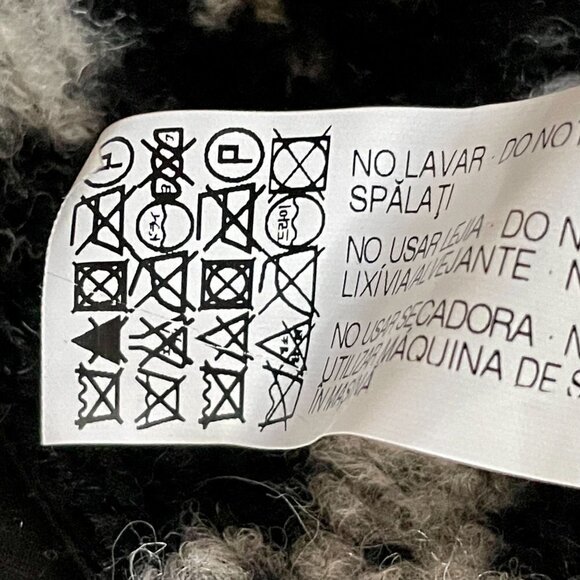 P
NO LAVAR · DO NO
SPĂLAȚI
NO USAR LEJIA · DO N
LIXÍVIA/ALVEJANTE · N
NO USAR SECADORA · N
UTILIZAR MÁQUINA DE S
ÎN MAȘINĂ